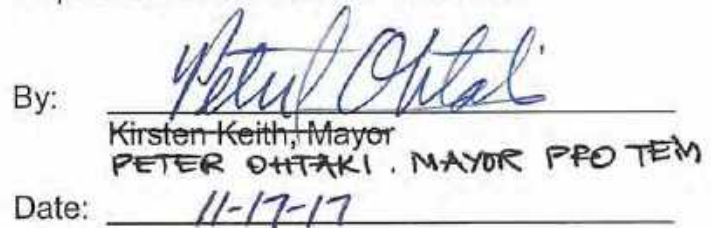 By: Peter Ohtaki
Kirsten Keith, Mayor
PETER OHTAKI. MAYOR PRO TEM
Date: 11-17-17